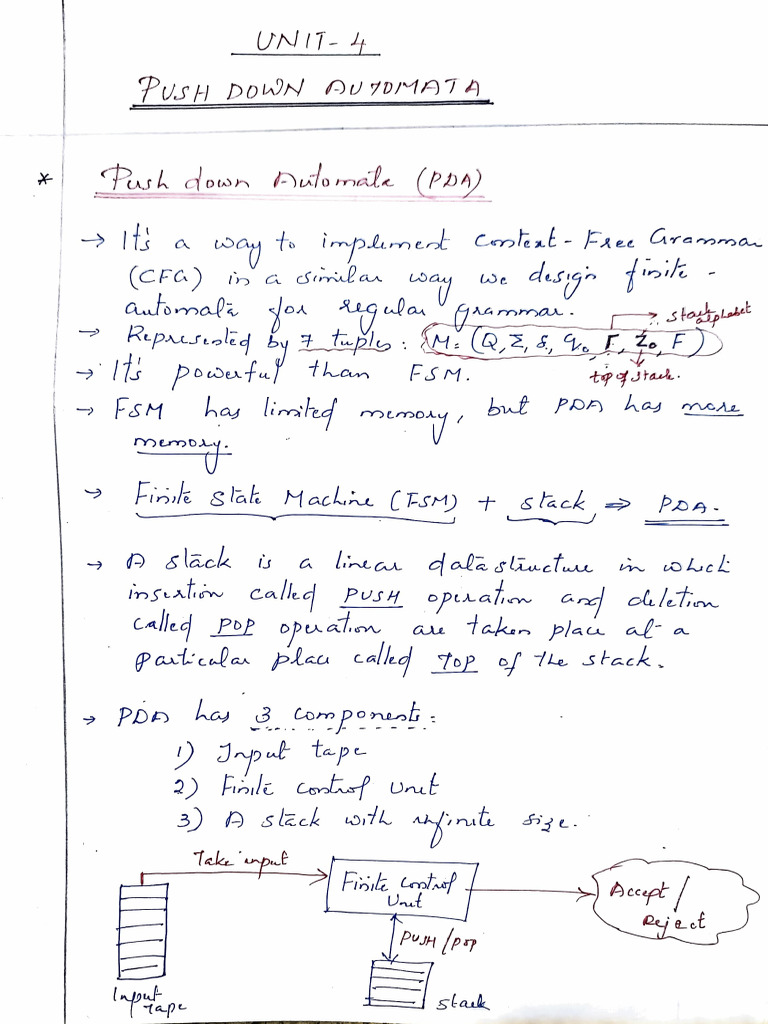 UNIT-4
PUSH DOWN AUTOMATA
* Push down Automata (PDA)
→ It's a way to implement Context-Free Grammar
(CFG) in a similar way we design finite-
automata for regular grammar.
→ stack alphabet
→ Represented by 7 tuples: M = (Q, Σ, δ, q₀, Γ, Z₀, F)
top of stack.
→ It's powerful than FSM.
→ FSM has limited memory, but PDA has more
memory.
→ Finite State Machine (FSM) + stack ⇒ PDA.
→ A stack is a linear data structure in which
insertion called PUSH operation and deletion
called POP operation are taken place at a
particular place called TOP of the stack.
→ PDA has 3 components:
1) Input tape
2) Finite control Unit
3) A stack with infinite size.
Take input
Finite control
Unit
Accept /
Reject
PUSH / pop
Input
tape
stack